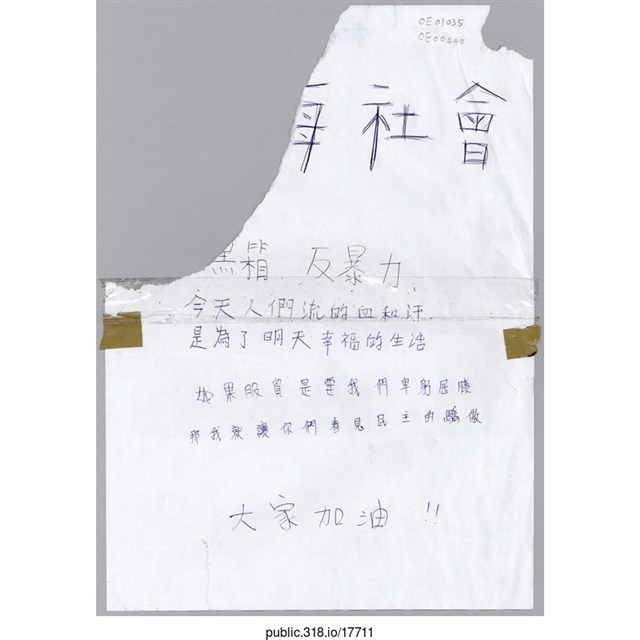 OE01035
OE00440
社會
黑箱 反暴力
今天人們流的血和汗
是為了明天幸福的生活
如果服貿是要我們卑躬屈膝
那我就讓你們看見民主的驕傲
大家加油!!
public.318.io/17711